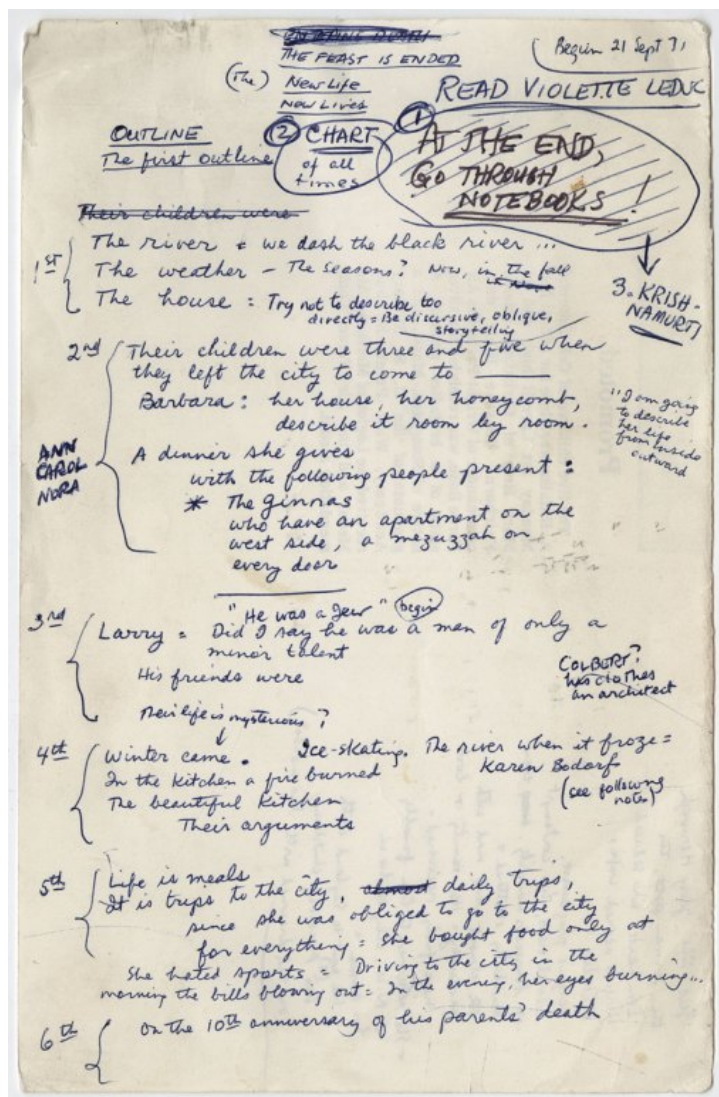 THE FEAST IS ENDED
(The) New Life
New Lives
Begun 21 Sept 71
READ VIOLETTE LEDUC
OUTLINE
The first outline
② CHART
of all
times
①
AT THE END,
GO THROUGH
NOTEBOOKS!
3. KRISH-
NAMURTI
Their children were
1st
The river & we dash the black river ...
The weather – The seasons? Now, in the fall
The house = Try not to describe too
directly = Be discursive, oblique,
storytelling
2nd
Their children were three and five when
they left the city to come to ____
Barbara: her house, her honeycomb,
describe it room by room.
"I am going
to describe
her life
from inside
outward
ANN
CAROL
NORA
A dinner she gives
with the following people present:
* The Ginnas
who have an apartment on the
west side, a mezuzzah on
every door
3rd
"He was a Jew" begin
Larry = Did I say he was a man of only a
minor talent
His friends were
COLBERT?
has clothes
an architect
Their life is mysterious?
4th
Winter came. Ice-skating. The river when it froze =
In the kitchen a fire burned Karen Bodorf
The beautiful kitchen (see following
notes)
Their arguments
5th
Life is meals
It is trips to the city, almost daily trips,
since she was obliged to go to the city
for everything = she bought food only at
She hated sports = Driving to the city in the
morning the bills blowing out = In the evening, her eyes burning...
6th
On the 10th anniversary of his parents' death